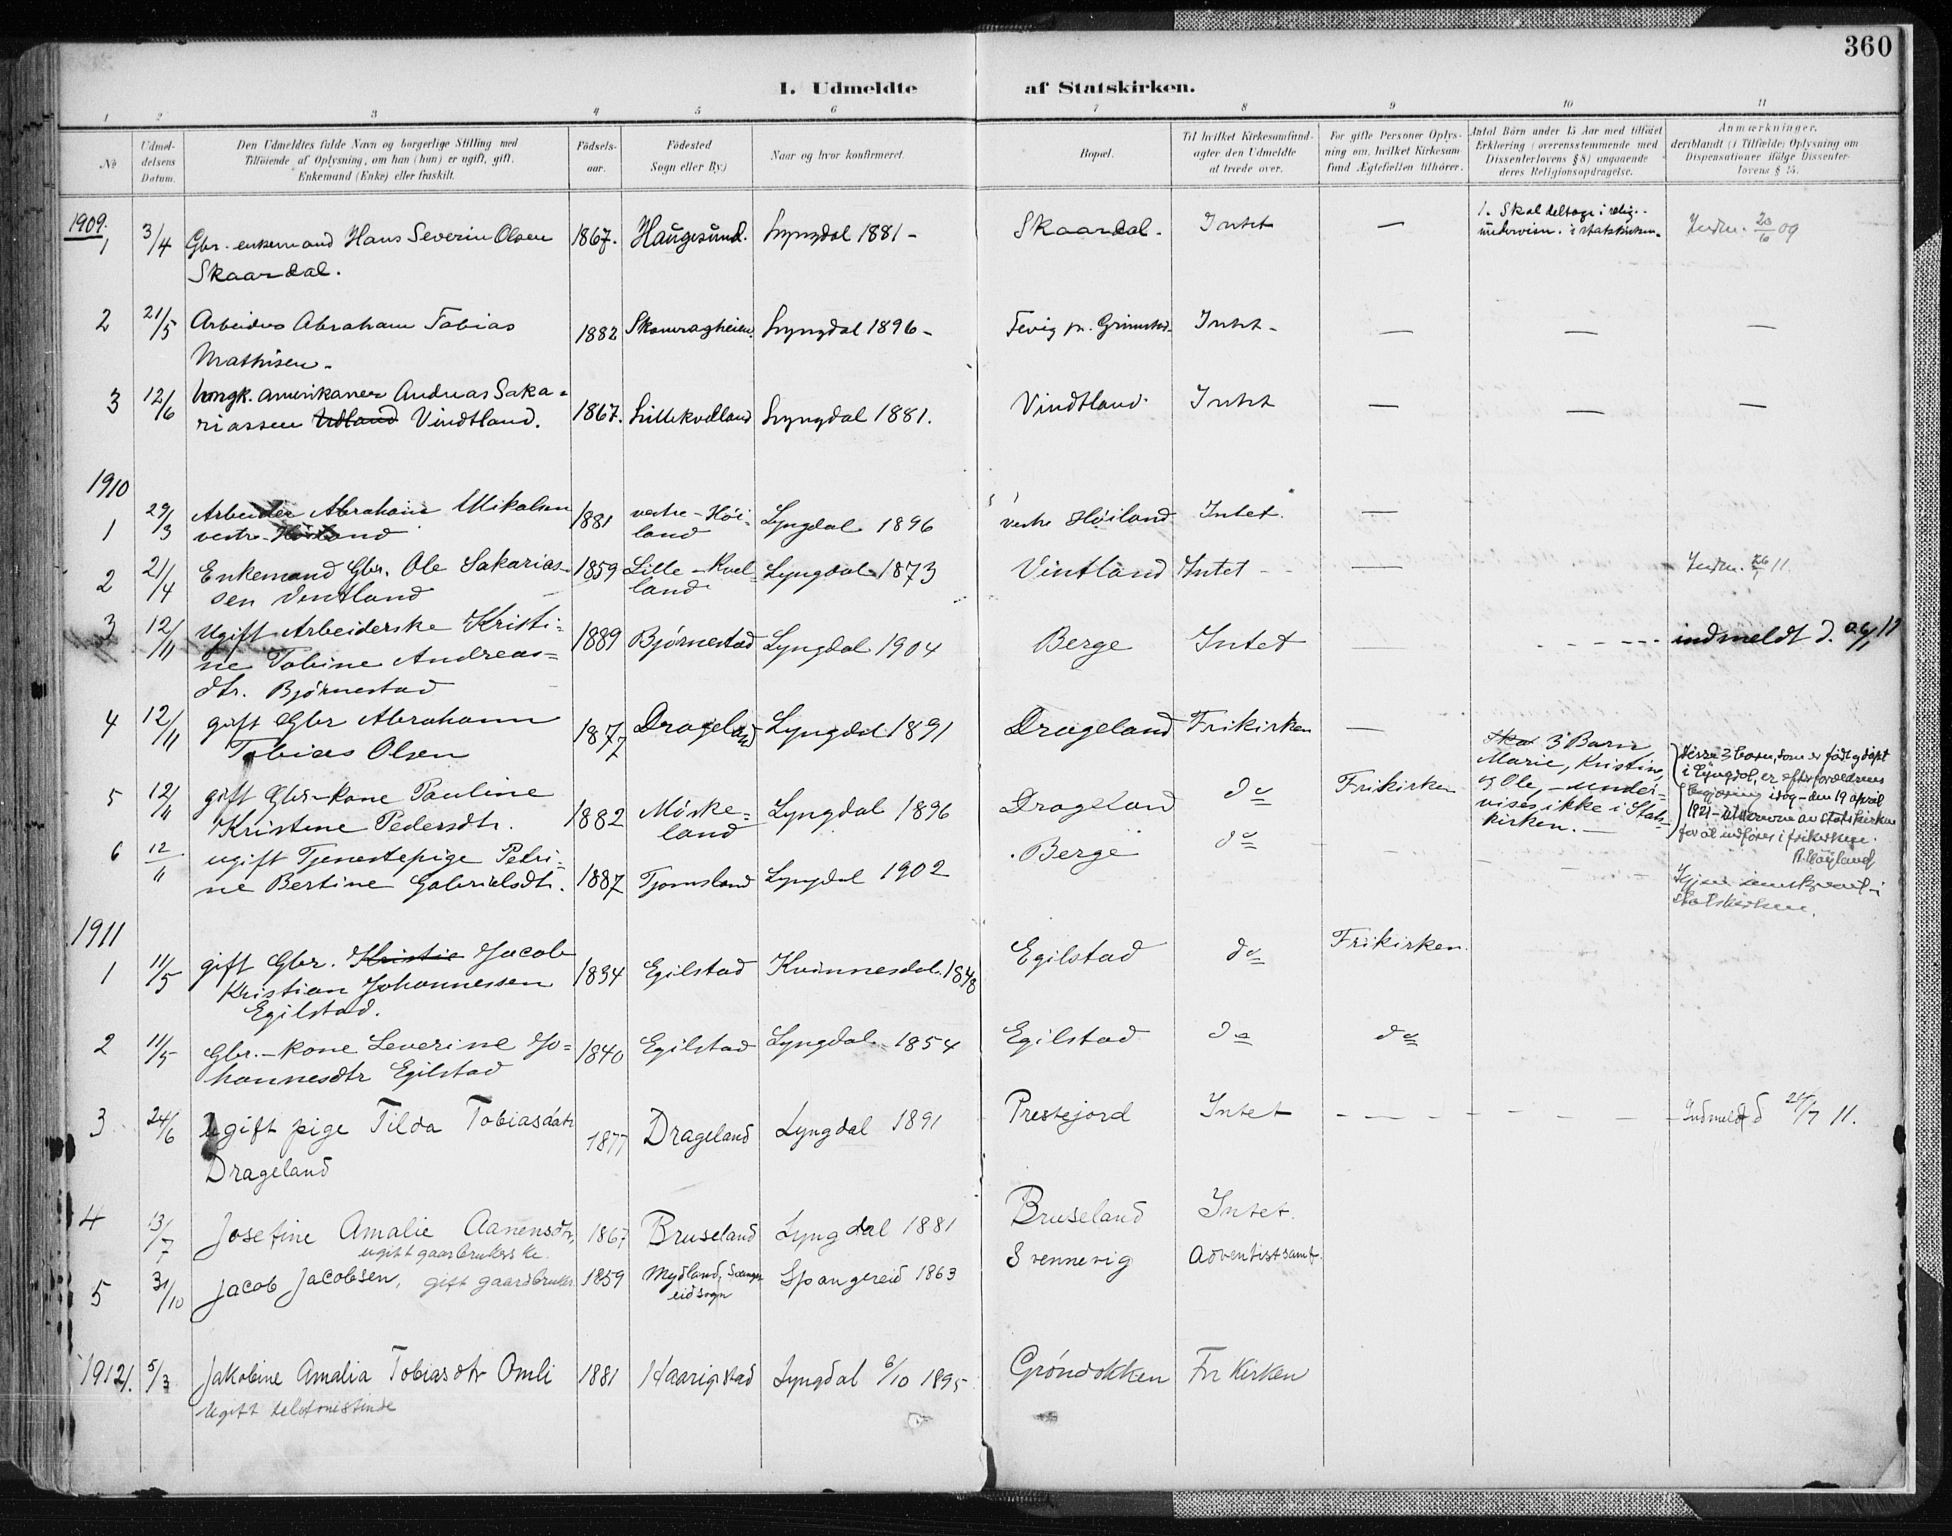 360
I. Udmeldte af Statskirken.
1 2 3 4 5 6 7 8 9 10 11
No
Udmeldelsens Datum.
Den Udmeldtes fulde Navn og borgerlige Stilling med
Tilføiende af Oplysning, om han (hun) er ugift, gift,
Enkemand (Enke) eller fraskilt.
Fødselsaar.
Fødested
Sogn eller By.)
Naar og hvor konfirmeret.
Bopæl.
Til hvilket Kirkesamfund
agter den Udmeldte
at træde over.
For gifte Personer Oplysning
om, hvilket Kirkesamfund
Ægtefællen tilhører.
Antal Børn under 15 Aar med tilføiet
Erklæring (overensstemmende med
Dissenterlovens § 8) angaaende
deres Religionsopdragelse.
Anmærkninger,
deriblandt (i Tilfælde) Oplysning om
Dispensationer ifølge Dissenterlovens
§ 15.
1909.
1 3/4 Gbr. enkemand Hans Severin Olsen 1867. Haugesund. Lyngdal 1881 - Skaardal. Intet — 1. Skal deltage i relig.- Indm. 20/6 09
Skaardal. undervisn. i statskirken.
2 21/5 Arbeider Abraham Tobias 1882 Lyngdal 1896 - Fevig pr. Grimstad Intet - — — —
Mathisen -
3 12/6 hmgk. amerikaner Andreas Saka- 1867. Lillekvelland Lyngdal 1881. Vindtland. Intet — — —
riassen Vindtland.
1910
1 29/3 Arbeider Abraham Mikalsen 1881 vestre-Høi- Lyngdal 1896 vestre Høiland Intet. —
vestre Høiland land
2 21/4 Enkemand Gbr. Ole Sakarias- 1859 Lille-Kvel- Lyngdal 1873 Vintland Intet — Indm. 26/1 11.
sen Ventland land
3 12/11 Ugift Arbeiderske Kristi- 1889 Bjørnestad Lyngdal 1904 Berge Intet — indmeldt d.
ne Tobine Andreas-
dtr. Bjørnestad
4 12/11 gift Gbr Abraham 1877 Drageland Lyngdal 1891 Drageland Frikirken — Skal 3 Barn,
Tobias Olsen Marie, Kristine,
5 12/11 gift Gbr-kone Pauline 1882 Møske- Lyngdal 1896 Drageland do Frikirken og Ole, - under-
Kristine Pedersdtr. land vises ikke i Stats-
kirken. -
Disse 3 barn, som er født og døpt
i Lyngdal, er efter forældrenes
begjæring idag - den 19 april
1921 - utskrevne av statskirken
for at indføres i frikirken.
6 12/11 ugift Tjenestepige Petri- 1887 Tjomsland Lyngdal 1902 Berge do
ne Bertine Gabrielsdtr. Igjen innskrevet i
statskirken.
1911
1 11/5 gift Gbr. Kristie Jacob 1834 Egilstad Kvinnesdal. 1848 Egilstad do Frikirken.
Kristian Johannessen
Egilstad.
2 11/5 Gbr.-kone Severine Jo- 1840 Egilstad Lyngdal 1854 Egilstad do do
hannesdtr Egilstad
3 24/6 Ugift pige Tilda Tobiasdatr 1877 Drageland Lyngdal 1891 Prestejord Intet Indmeldt d 24/7 11.
Drageland
4 13/7 Josefine Amalie Aanensdtr, 1867 Bruseland Lyngdal 1881 Bruseland Intet.
ugift gaarbrukerske.
5 31/10 Jacob Jacobsen, gift gaardbruker 1859 Mydland, Spangereid sogn Spangereid 1863 Svennevig Adventistsamf.
1912 1. 5/3 Jakobine Amalia Tobiasdtr Omli 1881 Haarigstad Lyngdal 6/10 1895 Grøndokken Fri Kirken
Ugift telefonistinde